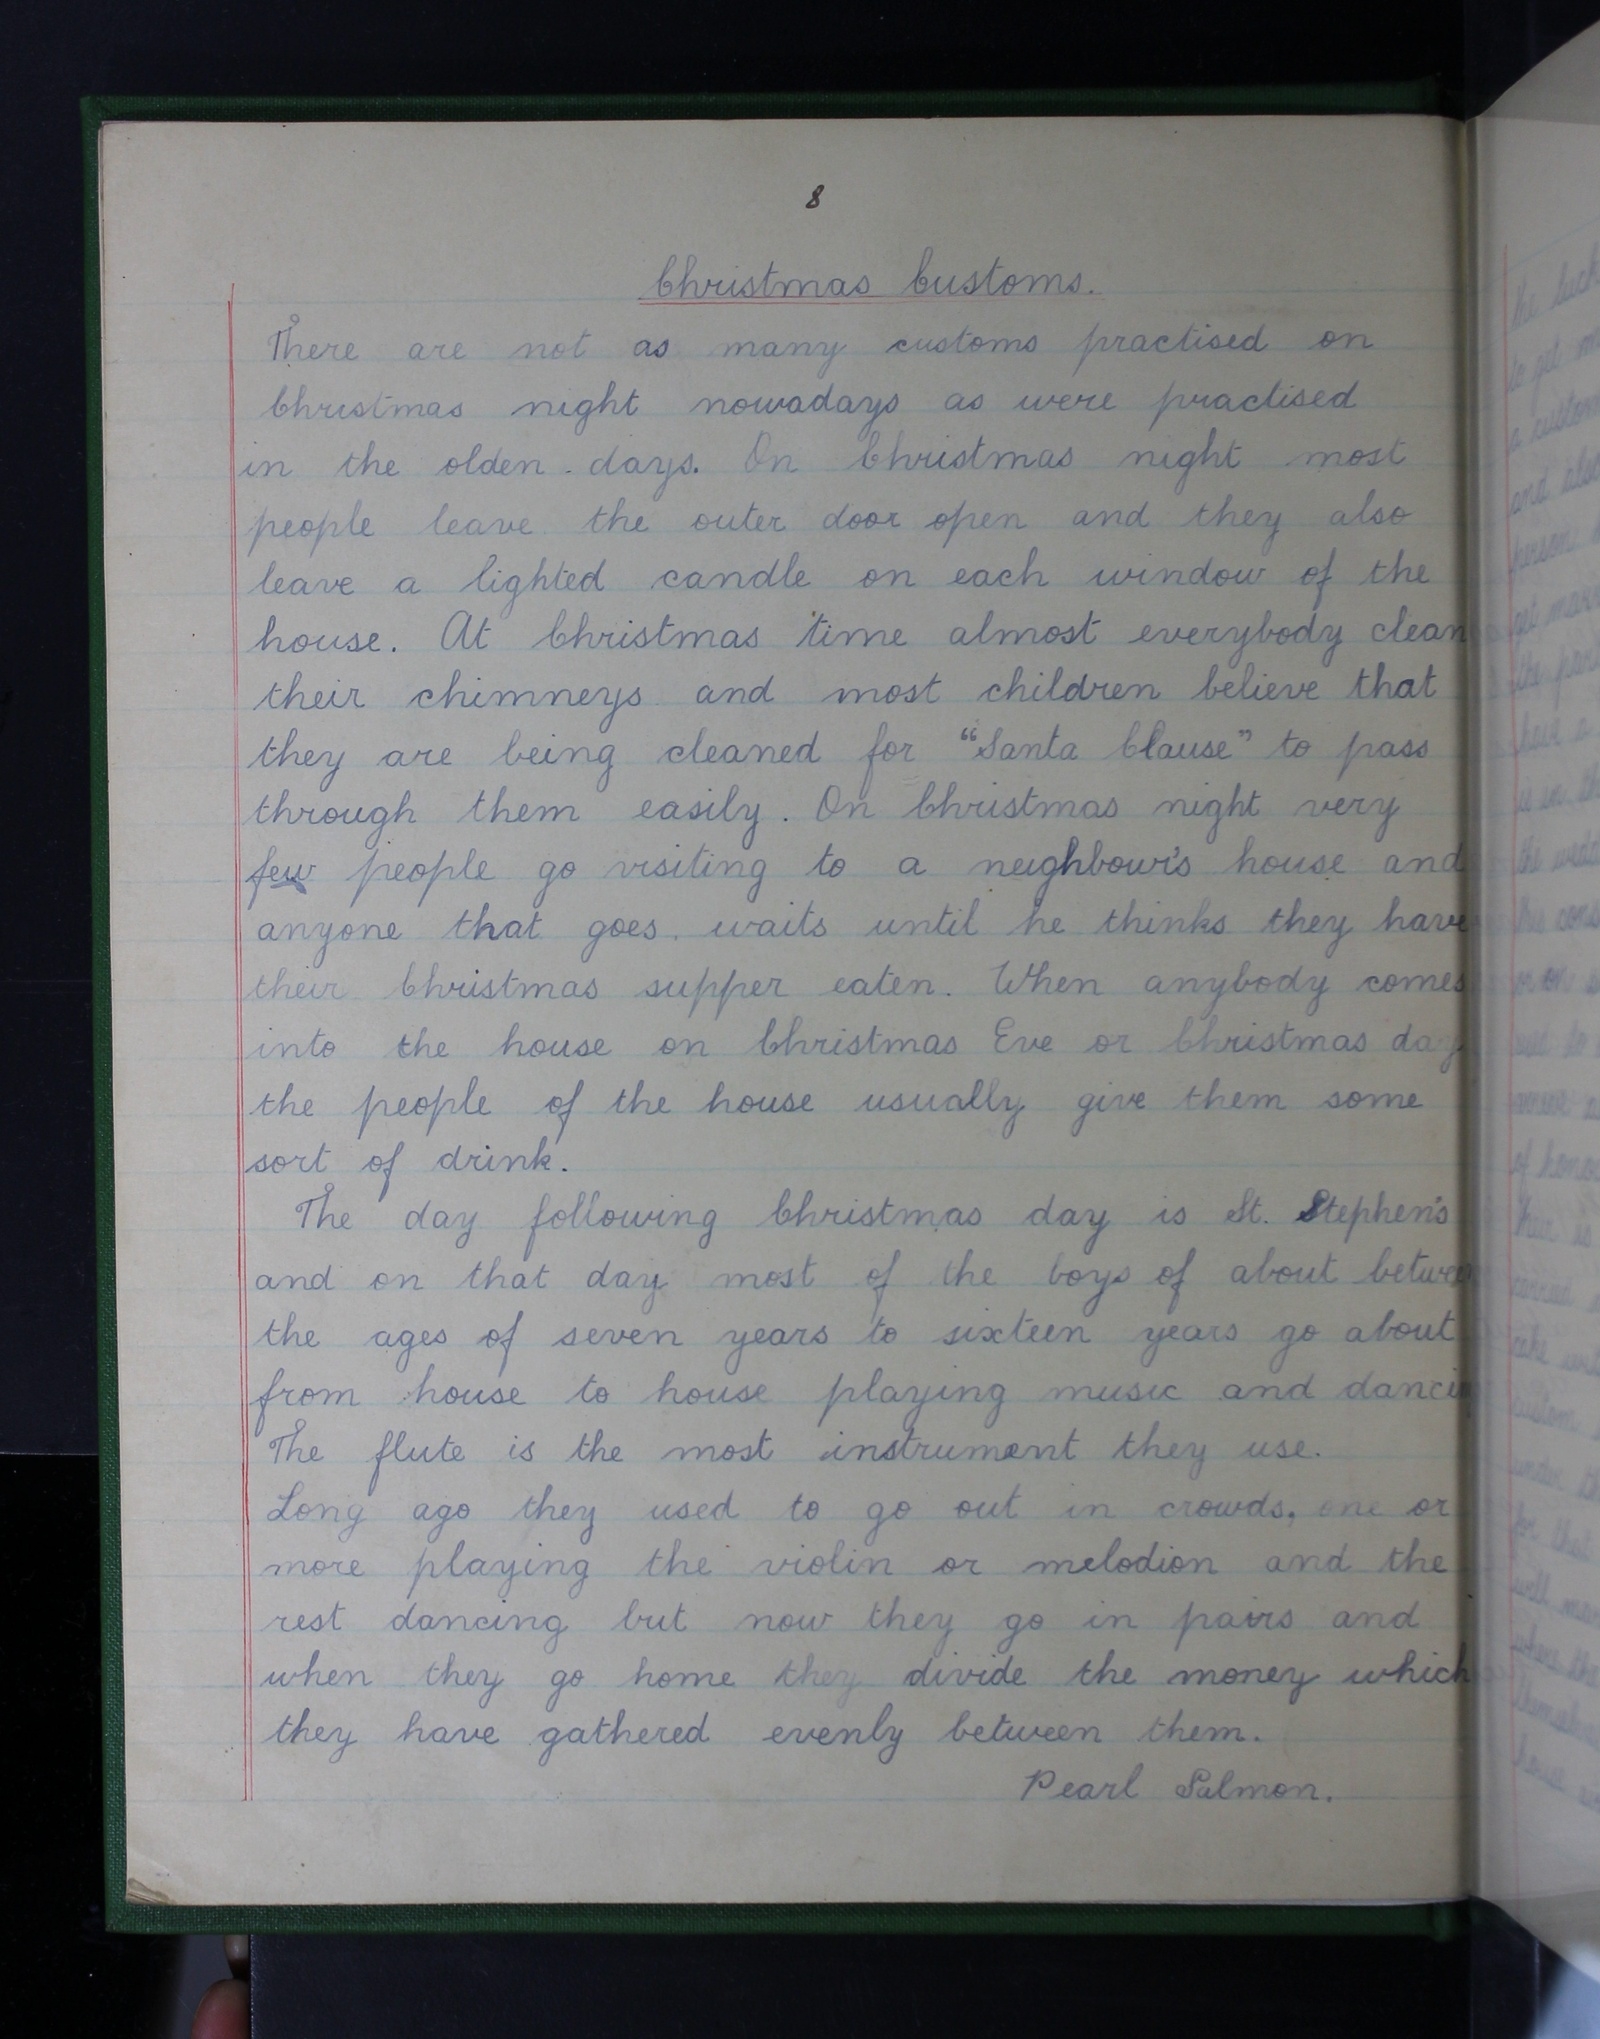 8
Christmas Customs.
There are not as many customs practised on
Christmas night nowadays as were practised
in the olden days. On Christmas night most
people leave the outer door open and they also
leave a lighted candle on each window of the
house. At Christmas time almost everybody clean
their chimneys and most children believe that
they are being cleaned for "Santa Clause" to pass
through them easily. On Christmas night very
few people go visiting to a neighbour's house and
anyone that goes waits until he thinks they have
their Christmas supper eaten. When anybody comes
into the house on Christmas Eve or Christmas day
the people of the house usually give them some
sort of drink.
The day following Christmas day is St. Stephen's
and on that day most of the boys of about between
the ages of seven years to sixteen years go about
from house to house playing music and dancin
The flute is the most instrument they use.
Long ago they used to go out in crowds, one or
more playing the violin or melodion and the
rest dancing but now they go in pairs and
when they go home they divide the money which
they have gathered evenly between them.
Pearl Salmon.